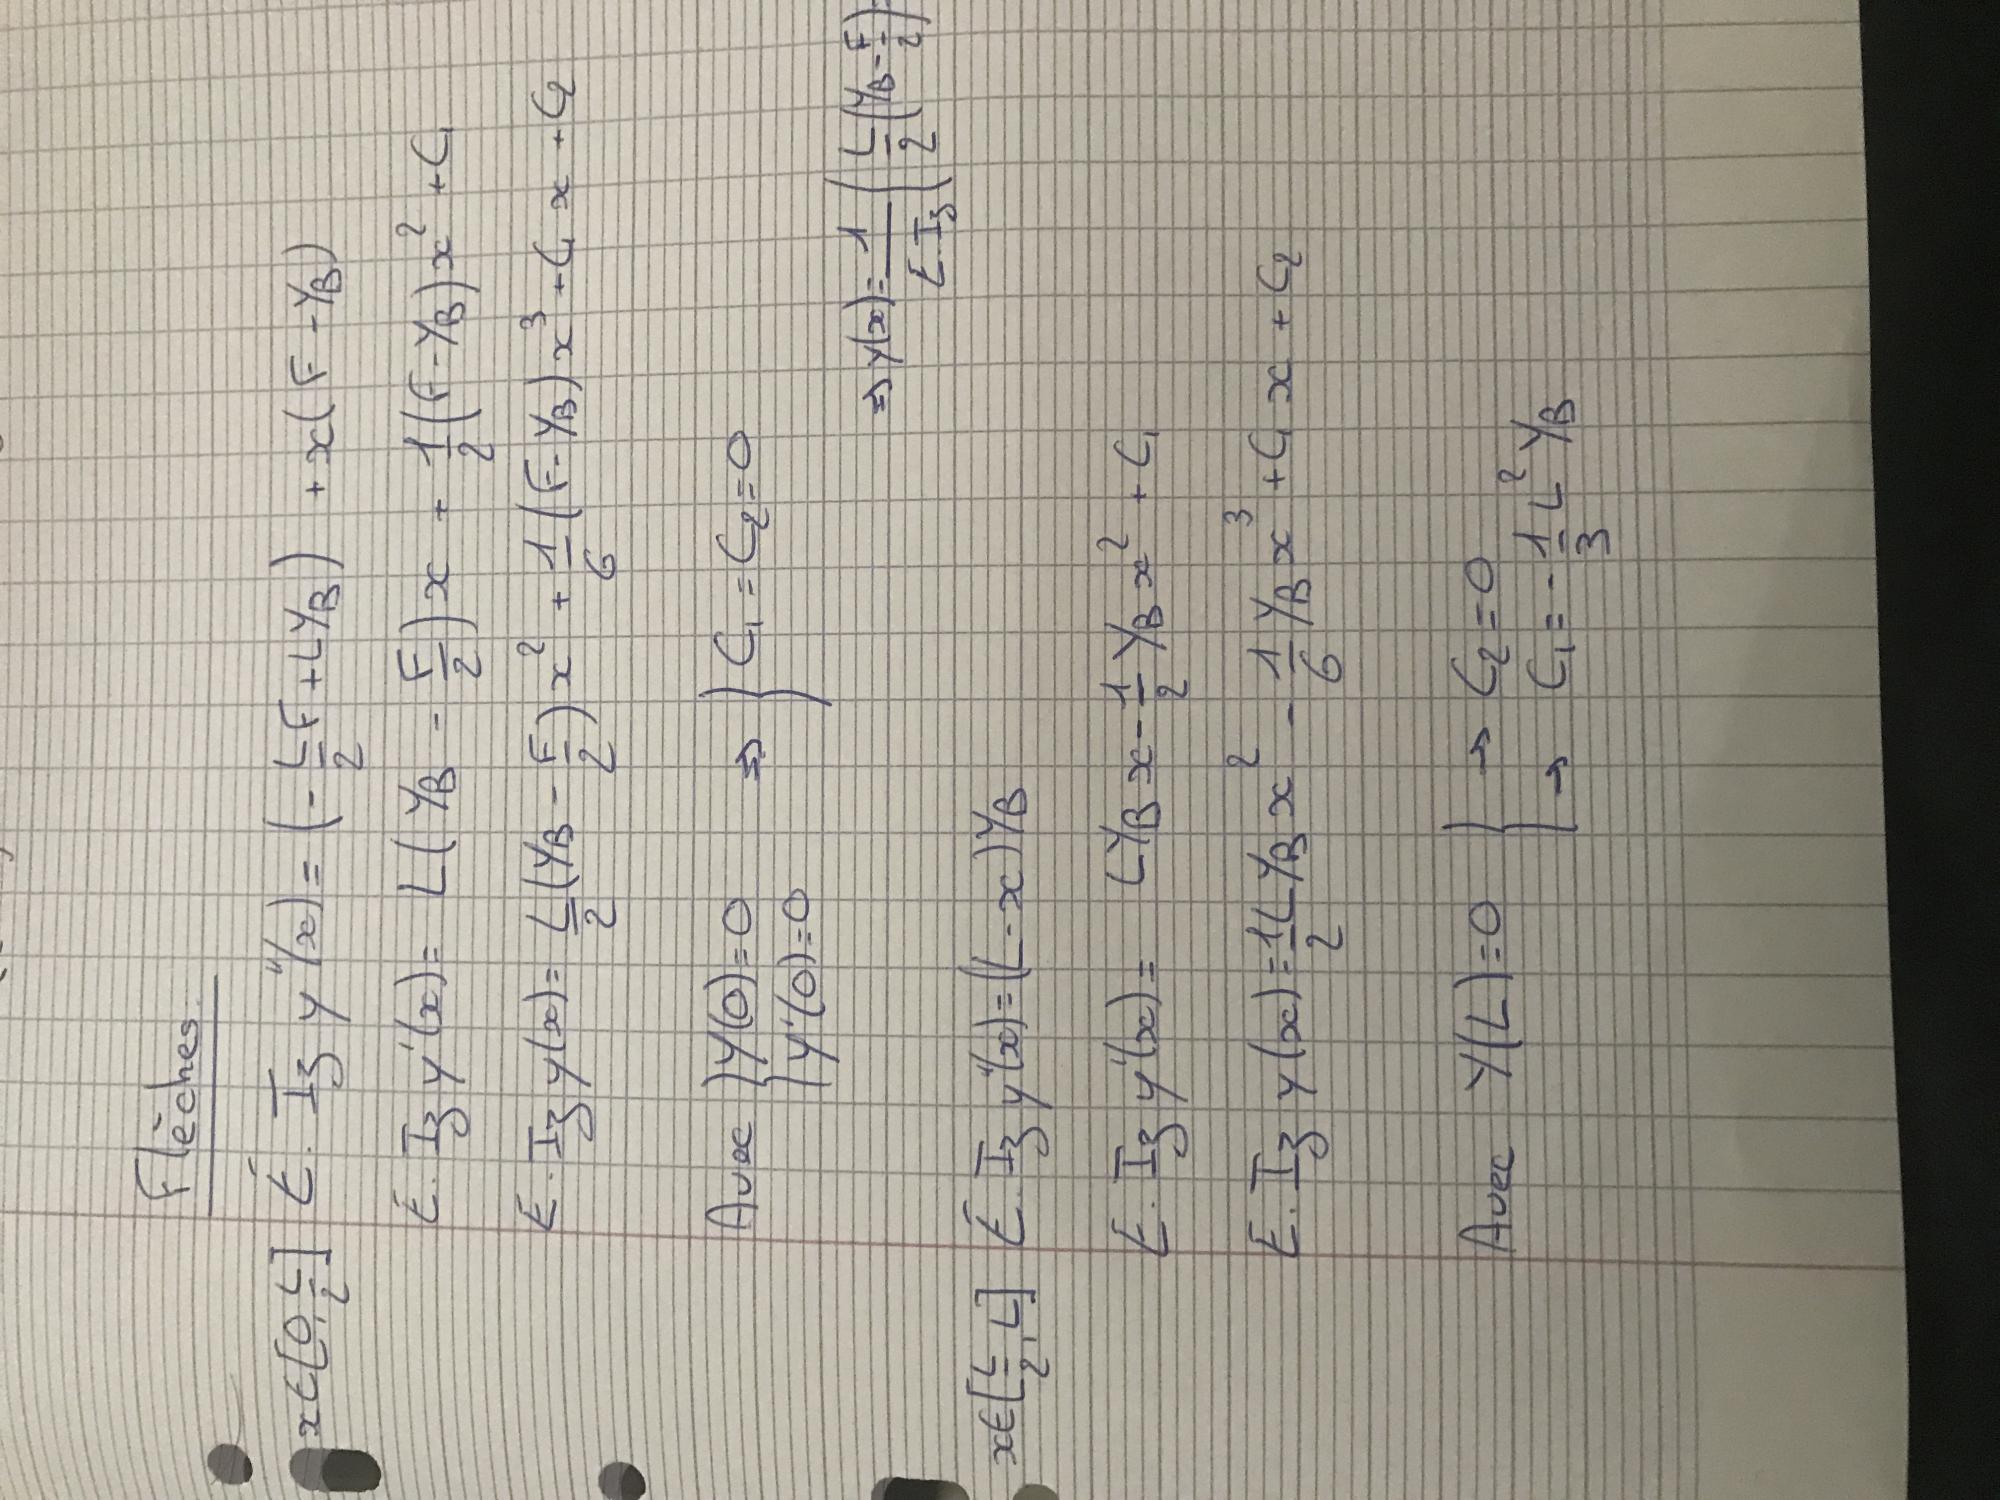 Flèches
x∈[0,L/2] E.Iz y''(x)=(-L/2 F+LY_B) + x(F-Y_B)
E.Iz y'(x)= L(Y_B - F/2)x + 1/2(F-Y_B)x² + C₁
E.Iz y(x)= L/2(Y_B-F/2)x² + 1/6(F-Y_B)x³+C₁x+C₂
Avec } y(0)=0 ⇒ } C₁=C₂=0
} y'(0)=0
⇒ y(x)= 1/E.Iz (L/2(Y_B-F/2)
x∈[L/2,L] E.Iz y''(x)=(L-x)Y_B
E.Iz y'(x)= LY_B x-1/2 Y_B x² + C₁
E.Iz y(x)=1/2 L Y_B x² - 1/6 Y_B x³ +C₁x+C₂
Avec y(L)=0 } → C₂=0
→ C₁=-1/3 L² Y_B